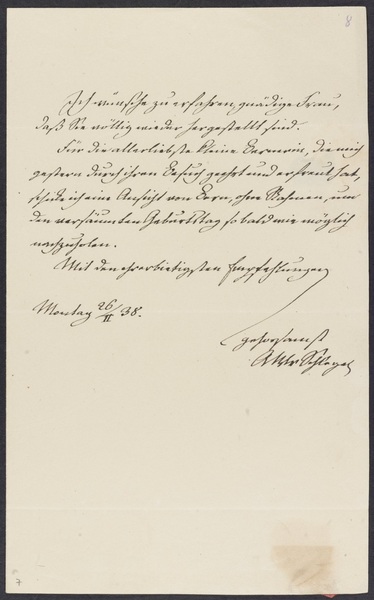 8
Ich wünsche zu erfahren, gnädige Frau,
daß Sie völlig wieder hergestellt sind.
Für die allerliebste kleine Bernerin, die mich
gestern durch ihren Besuch geehrt und erfreut hat,
schicke ich eine Ansicht von Bern, ohne Rahmen, um
den versäumten Geburtstag so bald wie möglich
nachzuholen.
Mit den ehrerbietigsten Empfehlungen
Montag 26/II 38.
gehorsamst
AWvSchlegel
7